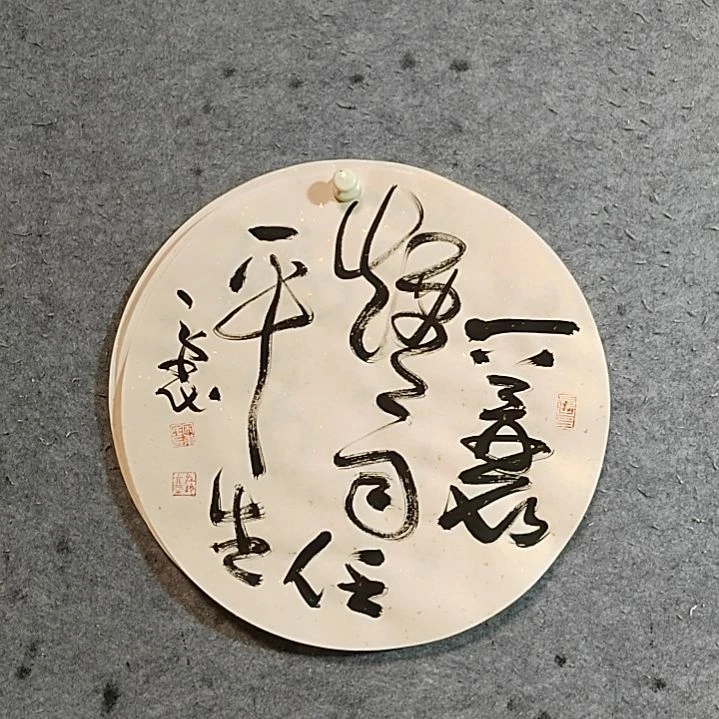 一蓑
烟雨任
平生